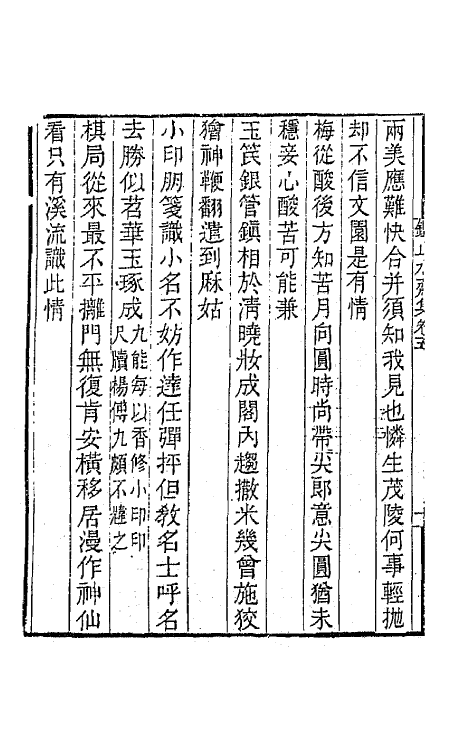 兩美應難快合并須知我見也憐生茂陵何事輕抛
却不信文園是有情
梅從酸後方知苦月向圓時尚帶尖郎意尖圓猶未
穩妾心酸苦可能兼
玉筦銀管鎭相於淸曉妝成閣內趨撒米幾曾施狡
獪神鞭翻遣到麻姑
小印朋箋識小名不妨作達任彈抨但敎名士呼名
去勝似苕華玉琢成九能每以香修小印印
尺牘楊傅九頗不韙之
棋局從來最不平攤門無復肯安橫移居漫作神仙
看只有溪流識此情
水齋集卷五